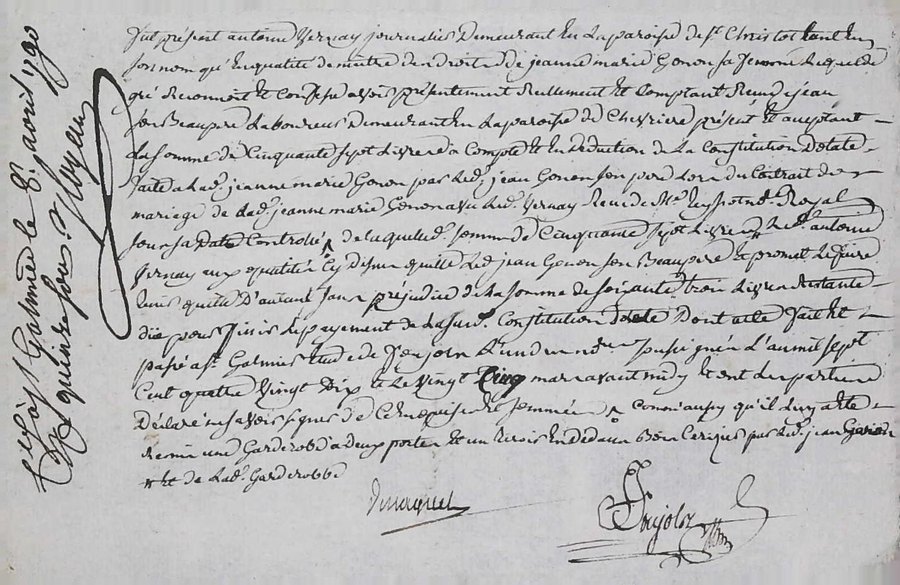 Fut présent antoine Vernay journalier Demeurant En La paroisse de St. Christot tant En
son nom qu'En qualité de maitre des droits de jeanne marie Gonon sa femme Lequel de
gré Reconnoit Et Confesse avoir présentement Réellement Et Comptant Reçu de jean
son Beaupere Laboureur Demeurant En La paroisse de Chevriere présent Et aceptant
La somme de Cinquante sept Livres à Compte Et En déduction de La Constitution Dotale
faite a Lad. jeanne marie Gonon par Led. jean Gonon son pere Lors du Contrait de
mariage de Lad. jeanne marie Gonon avec Led. Vernay Reçu de Me. Royal
sous sa Date Controllé, de laquelle d. somme de Cinquante sept Livres Led. antoine
Vernay aux qualités Cy dessus quitte Led. jean Gonon son Beaupere Et promet Le faire
tenir quitte D'autant sans préjudice de La somme de soixante trois Livres Restante
düe pour finir Le payement de La sus d. Constitution Dotale Dont acte fait Et
passé a St. Galmier Etude de Ferjolx L'un des nd. res soussignés L'an mil sept
Cent quatre Vingt Dix Et Le Vingt Cinq mars avant midy Et ont Les parties
Déclaré ne savoir signer de Ce Enquises Et sommées Comm'aussy qu'il Luy a été
Remis une Garderobe a deux portes Et un tiroir En dedans Bois Cerisier par Led. jean Gonon
Et de Lad. Garderobbe
Ferjolx
Clé à St Galmier le 8. avril 1790
Reçu quinze sous